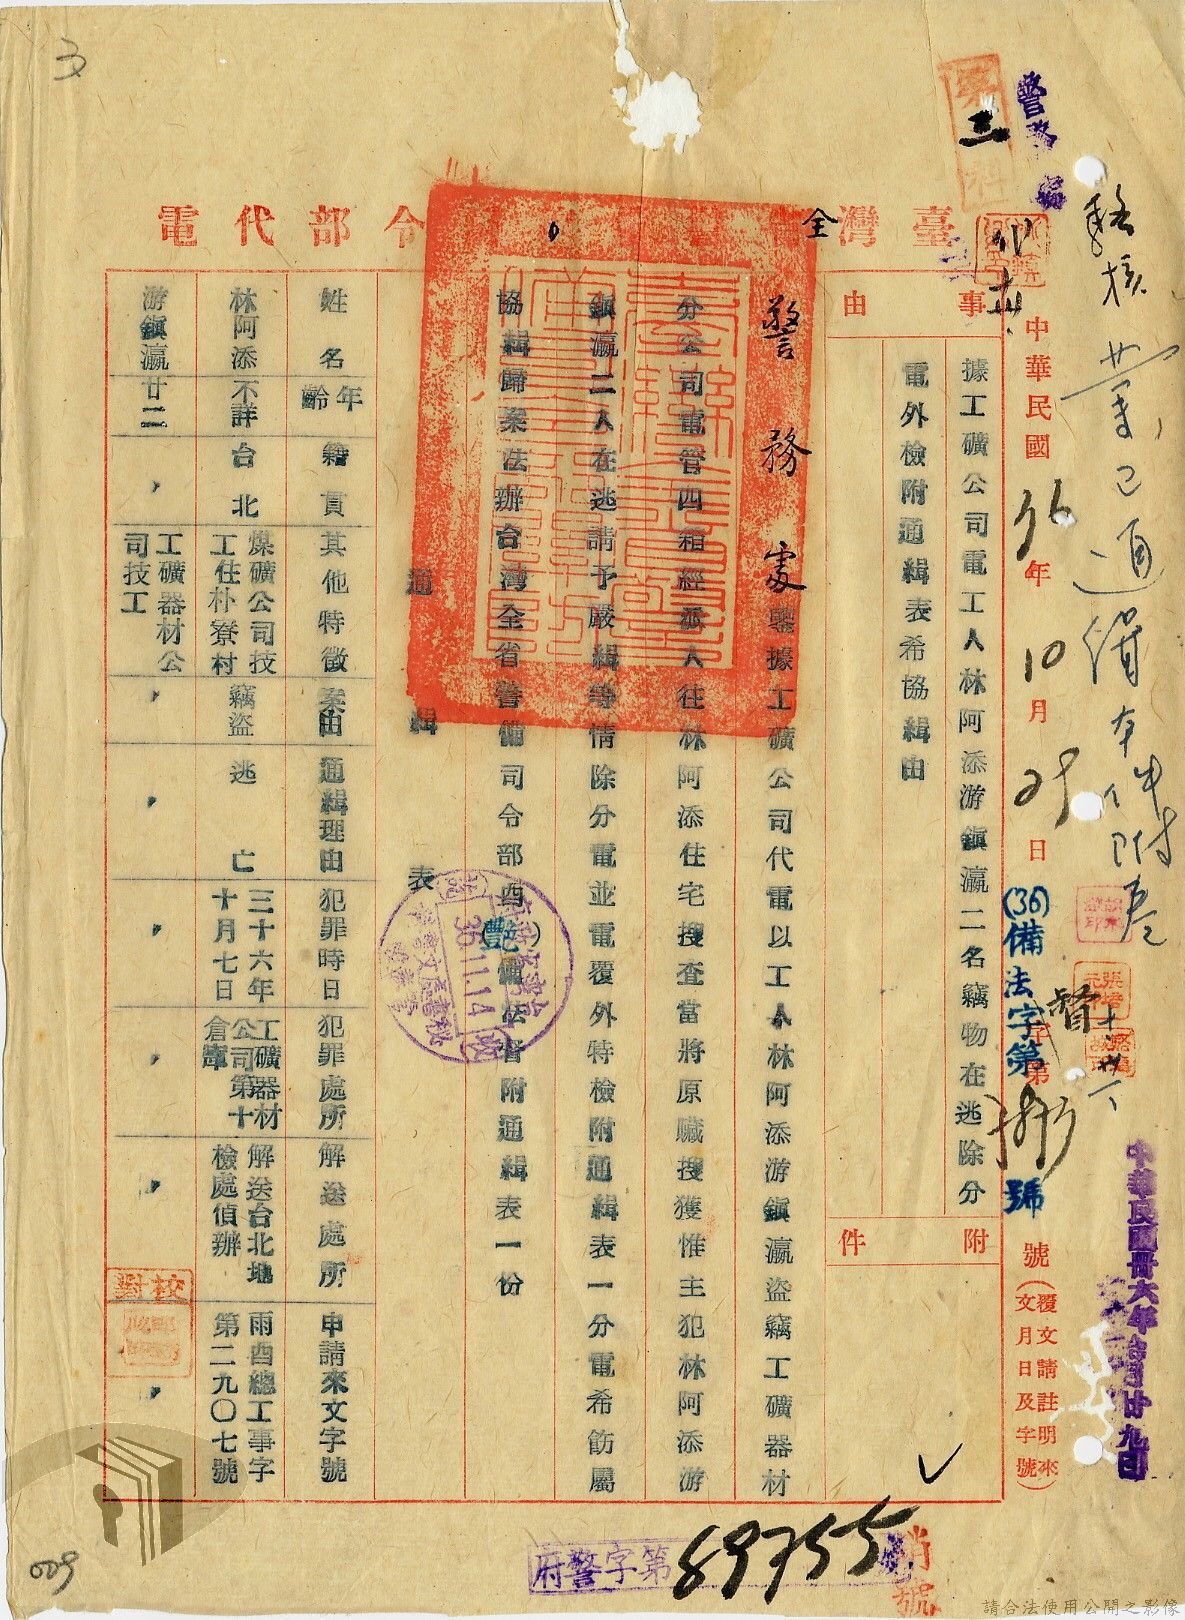 臺灣全
令部代電
事由
據工礦公司電工人林阿添游鎮瀛二名竊物在逃除分
電外檢附通緝表希協緝由
附件
中華民國36年10月29日
(36)備法字第
號
號(覆文請註明來文月日及字號)
警務處鑒據工礦公司代電以工人林阿添游鎮瀛盜竊工礦器材
分公司電管四箱經派人往林阿添住宅搜查當將原贓搜獲惟主犯林阿添游
鎮瀛二人在逃請予嚴緝等情除分電並電覆外特檢附通緝表一分電希飭屬
協緝歸案法辦台灣全省警備司令部酉(艷)備法督附通緝表一份
通緝表
姓名 年齡 籍貫 其他特徵 案由 通緝理由 犯罪時日 犯罪處所 解送處所 申請來文字號
林阿添 不詳 台北 煤礦公司技工住朴寮村 竊盜 逃亡 三十六年十月七日 工礦器材公司第十倉庫 解送台北地檢處偵辦 雨酉總工事字第二九〇七號
游鎮瀛 廿二 〃 工礦器材公司技工 〃 〃 〃 〃 〃 〃
校對
36.11.14
第三科
中華民國卅六年拾月廿九日
府警字第89755號
掛號
009
請合法使用公開之影像